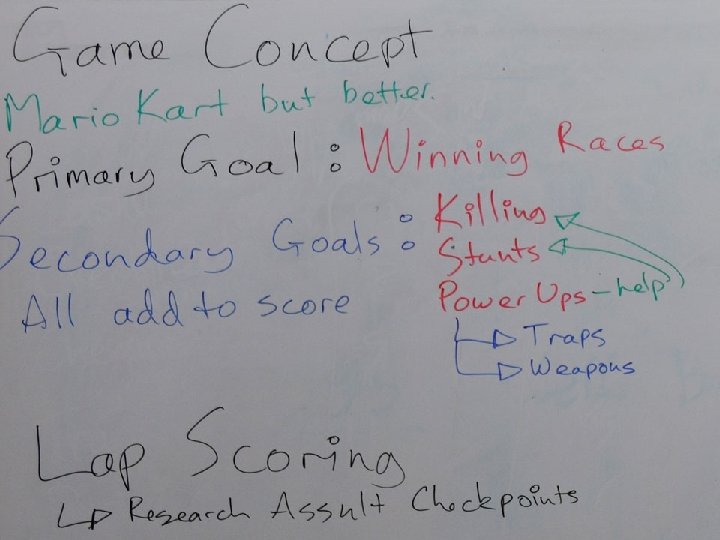 Game Concept
Mario Kart but better.
Primary Goal : Winning Races
Secondary Goals : Killing
Stunts
All add to score
Power Ups - help
Traps
Weapons
Lap Scoring
Research Assult Checkpoints